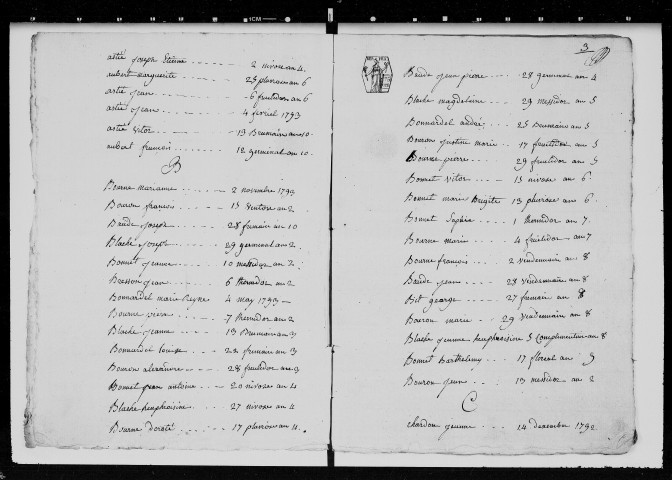 astié Joseph Etiene - - - - - - 2 nivose an 4.
aubert marguerite - - - - 25 pluviose an 6
astié Jean - - - - - - - 6 fruitidor an 6
astié Jean - - - - - - - 4 fevriel 1793
astié victor - - - - - - 13 Brumaire an 10.
aubert francois - - - - - 12 germinal an 10.
B
Bourne marianne - - - - 2 novembre 1793
Bouron francois - - - - 15 ventose an 2.
Baude Joseph - - - - 28 frimaire an 10
Blache Joseph - - - - 29 germinal an 2.
Bonnet Jeanne - - - - 10 messidor an 2.
Bresson Jean - - - - 6 thermidor an 2
Bonnardel marie Reyne - 4 may 1793 -
Bourne - - - - 7 thermidor an 2
Blache Jeanne - - - - 13 Brumaire an 3
Bonnardel Louise - - - 22 frimaire an 3
Bouron alexandre - - - 28 fruitidor an 3
Bonnet Jean antoine - - - 20 nivose an 4
Blache - - - - 27 nivose an 4
Bourne doroté - - - - 17 pluviose an 4.
3
Baude Jean pierre - - - - 28 germinal an 4
Blache magdeleine - - - - 29 messidor an 5
Bonnardel - - - - 25 Brumaire an 5
Bouron Justine marie - - 17 fruitidor an 5
Bourne pierre - - - - 29 fruitidor an 5
Bonnet victor - - - - 15 nivose an 6.
Bonnet marie Brigite 13 pluviose an 6.
Bonnet Sophie - - - - 1 thermidor an 7.
Bourne marie - - - - 4 fruitidor an 7
Bourne francois - - - 2 vendemaire an 8
Baude Jean - - - - 28 vendemaire an 8
Bit george - - - - 27 frimaire an 8
Bouron marie - - - - 29 vendemaire an 8
Blache Jeanne 5 complimentaire an 8
Bonnet Barthelemy - - - 17 floreal an 9
Bouron Jean - - - - 13 messidor an 2
C
chardon Jeanne - - - - 14 decembre 1792.